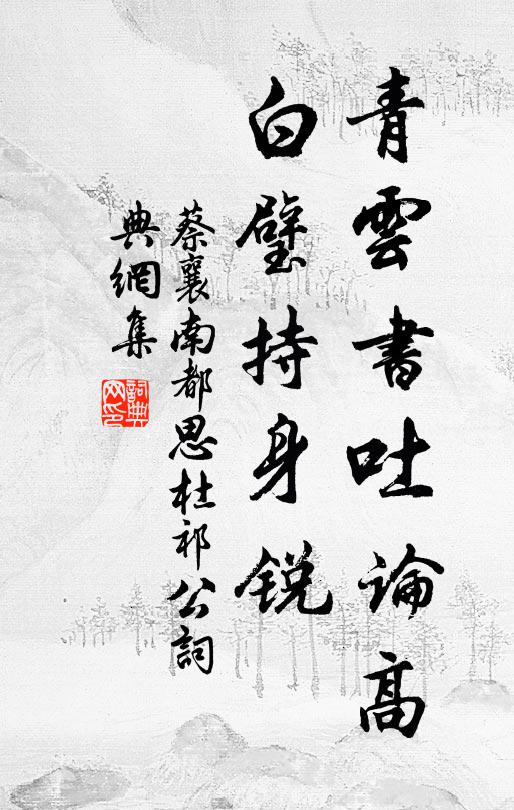 青雲書吐論高
白璧持身銳
蔡襄南都思杜祁公詞
典網集
詞典
网印